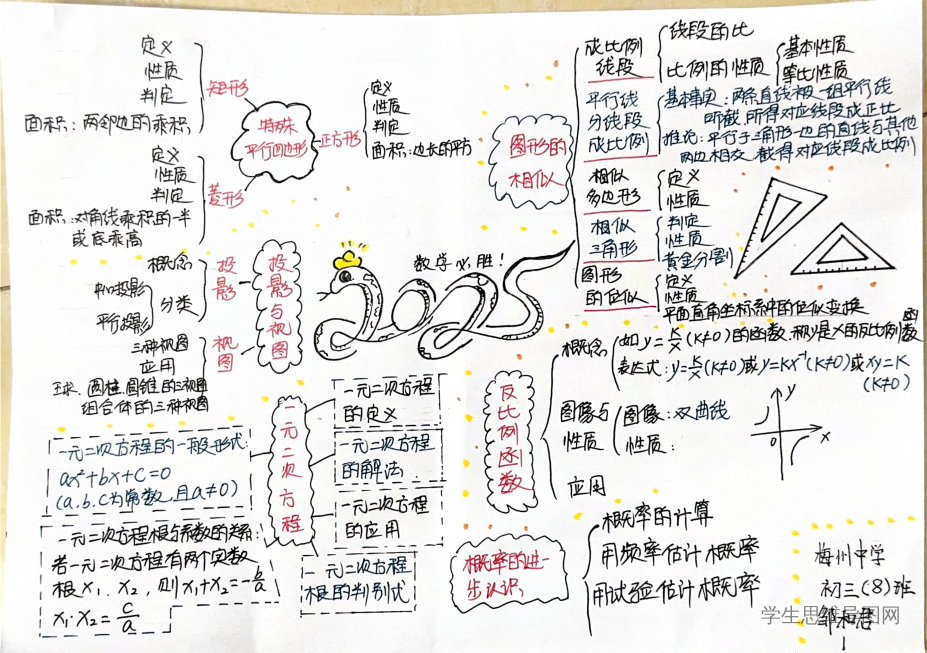 定义
性质
判定
面积：两邻边的乘积
矩形
定义
性质
判定
面积：对角线乘积的一半
或底乘高
菱形
特殊
平行四边形
正方形
定义
性质
判定
面积：边长的平方
概念
中心投影
平行投影
分类
投影
三种视图
应用
球、圆柱、圆锥的三视图
组合体的三种视图
视图
投影与视图
数学必胜！
2025
图形的
相似
成比例
线段
线段的比
比例的性质
基本性质
等比性质
平行线
分线段
成比例
基本事实：两条直线被一组平行线
所截，所得对应线段成正比
推论：平行于三角形一边的直线与其他
两边相交，截得对应线段成比例
相似
多边形
定义
性质
相似
三角形
判定
性质
黄金分割
图形
的位似
定义
性质
平面直角坐标系中的位似变换
反比例函数
概念
如y=k/x(k≠0)的函数，称y是x的反比例函数
表达式：y=k/x(k≠0)或y=kx⁻¹(k≠0)或xy=k
(k≠0)
图像与
性质
图像：双曲线
性质：
y
0
x
应用
一元二次方程
一元二次方程
的定义
一元二次方程
的解法
一元二次方程
的应用
一元二次方程
根的判别式
一元二次方程的一般形式：
ax²+bx+c=0
(a、b、c为常数，且a≠0)
一元二次方程根与系数的关系：
若一元二次方程有两个实数
根x₁、x₂，则x₁+x₂=-b/a
x₁·x₂=c/a
概率的进一
步认识
概率的计算
用频率估计概率
用试验估计概率
梅州中学
初三(8)班
学生思维导图网